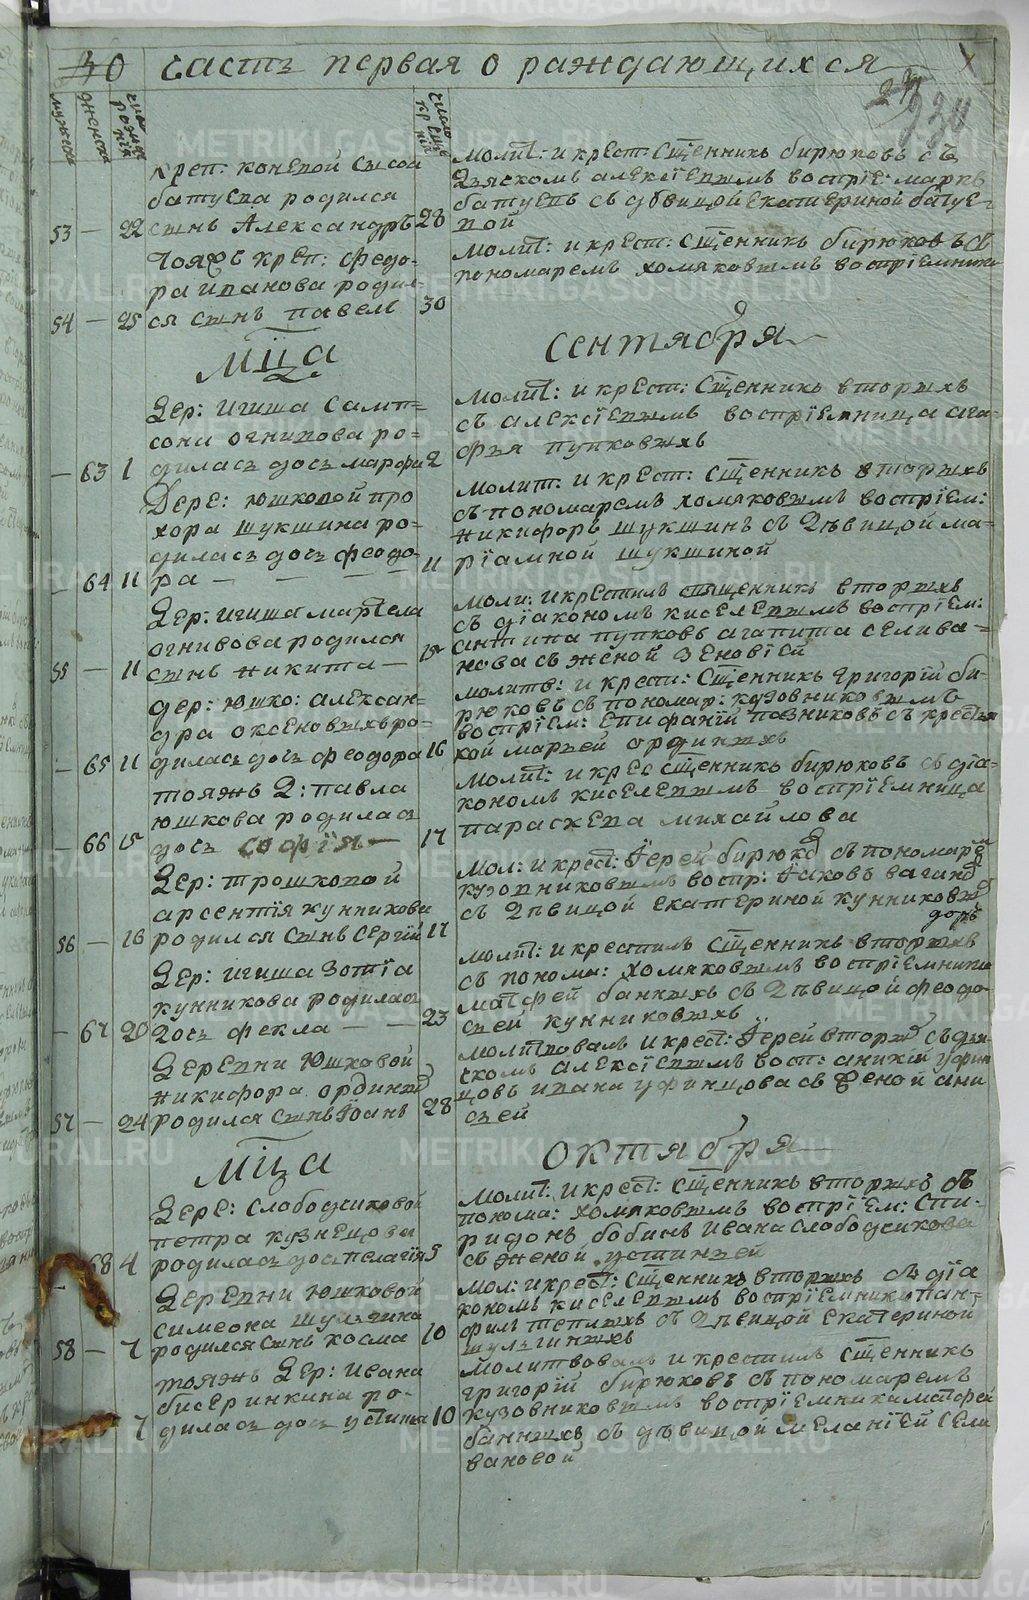 40 часть первая о раждающихся
234
мужеска
женска
число рождения
число крещения
Креп: Коневой Сысоа
батуева родился
53 — 22 сынъ Александръ 28
Тояжъ креп: Федо-
ра иванова родил-
54 — 25 ся сынъ павелъ 30
молит: и крест: Сщенникъ бирюковъ съ
Дьяскомъ алексіевымъ воспріе: маркъ
батуевъ съ дѣвицой Екатериной батуе-
вой
Молит: и крест: Сщенникъ бирюковъ съ
пономаремъ хомяковымъ воспріемник
Мца Сентября
Дер: игиша Самп=
сона огнивова ро=
— 63 1 дилась дочь марфа 2
молит: и крест: Сщенникъ вторыхъ
съ алексіевымъ воспріемница ага-
фья пупковыхъ
Дере: юшковой про
хора шукшина ро=
дилась дочь феодо-
— 64 11 ра — — — — 11
Молит: и крест: Сщенникъ вторыхъ
съ пономаремъ хомяковымъ воспріем:
никифоръ шукшинъ съ Дѣвицой ма-
ріамной шукшиной
Дер: игиша мартела
огнивова родился
55 — 11 сынъ никита — 15
моли: и крестилъ сщенникъ вторыхъ
съ діакономъ киселевымъ воспріем:
антипа пупковъ агапита селива-
нова съ женой зеновіей
дер: юшко: алексан-
дра оксеновыхъ ро=
— 65 11 дилась дочь феодора 16
молитв: и крест: Сщенникъ григорій би-
рюковъ съ пономар: кузовниковымъ
воспріем: епифаній позниковъ съ крестьян
кой марьей ординыхъ
тояжъ Д: павла
юшкова родилась
— 66 15 дочь софія — 17
молит: и крес Сщенникъ бирюковъ съ діа-
кономъ киселевымъ воспріемница
параскева михайлова
Дер: трошковой
арсентія кунникова
56 — 16 родился сынъ Сергій 17
мол: и крест: Іерей бирюко съ пономаре
кузовниковымъ воспр: Іаковъ вагин
съ Дѣвицой екатериной кунниковы
дочь
Дер: игиша Зотіа
кунникова родилась
— 67 20 дочь фекла — — 23
молит: и крестилъ Сщенникъ вторыхъ
съ понома: хомяковымъ воспріемники
матфей банныхъ съ Дѣвицой феодо-
сьей кунниковыхъ
Деревни Юшковой
никифора ординых
57 — 24 родился сынъ Іоанъ 28
молитвовалъ и крест: Іерей вторых съ дья-
скомъ алексіевымъ восп: аникій уфин
цовъ ивана уфинцова съ женой ани
сьей
Мца Октября
Дере: Слободчиковой
петра кузнецова
68 4 родилась дочь пелагія 5
молит: и крест: Сщенникъ вторыхъ съ
понома: хомяковымъ воспріем: Спи-
ридонъ бобинъ ивана Слободчикова
съ женой устиньей
Деревни Юшковой
симеона шульгина
58 — 7 родился сынъ косма 10
мол: и крест: Сщенникъ вторыхъ съ діа
кономъ киселевымъ воспріемники пан-
филъ теплыхъ съ Дѣвицой екатериной
шульгиныхъ
тояжъ Дер: ивана
бисеринкина ро-
7 дилась дочь устина 10
молитвовалъ и крестилъ Сщенникъ
григорій бирюковъ съ пономаремъ
кузовниковымъ воспріемники матфей
банныхъ съ дѣвицой меланіей сели
вановой
METRIKI.GASO-URAL.RU